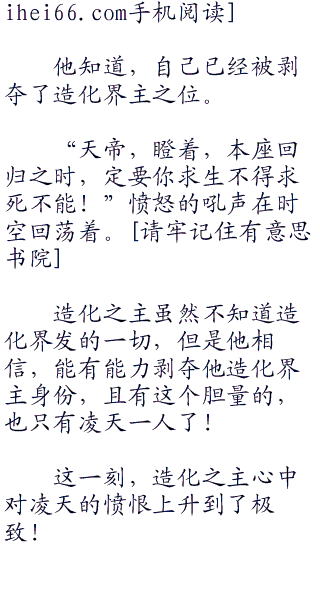 ihei66.com手机阅读]
他知道，自己已经被剥
夺了造化界主之位。
“天帝，瞪着，本座回
归之时，定要你求生不得求
死不能！”愤怒的吼声在时
空回荡着。[请牢记住有意思
书院]
造化之主虽然不知道造
化界发的一切，但是他相
信，能有能力剥夺他造化界
主身份，且有这个胆量的，
也只有凌天一人了！
这一刻，造化之主心中
对凌天的愤恨上升到了极
致！